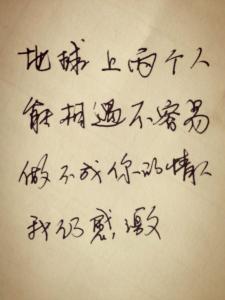 地球上两个人
能相遇不容易
做不成你的情人
我仍感激